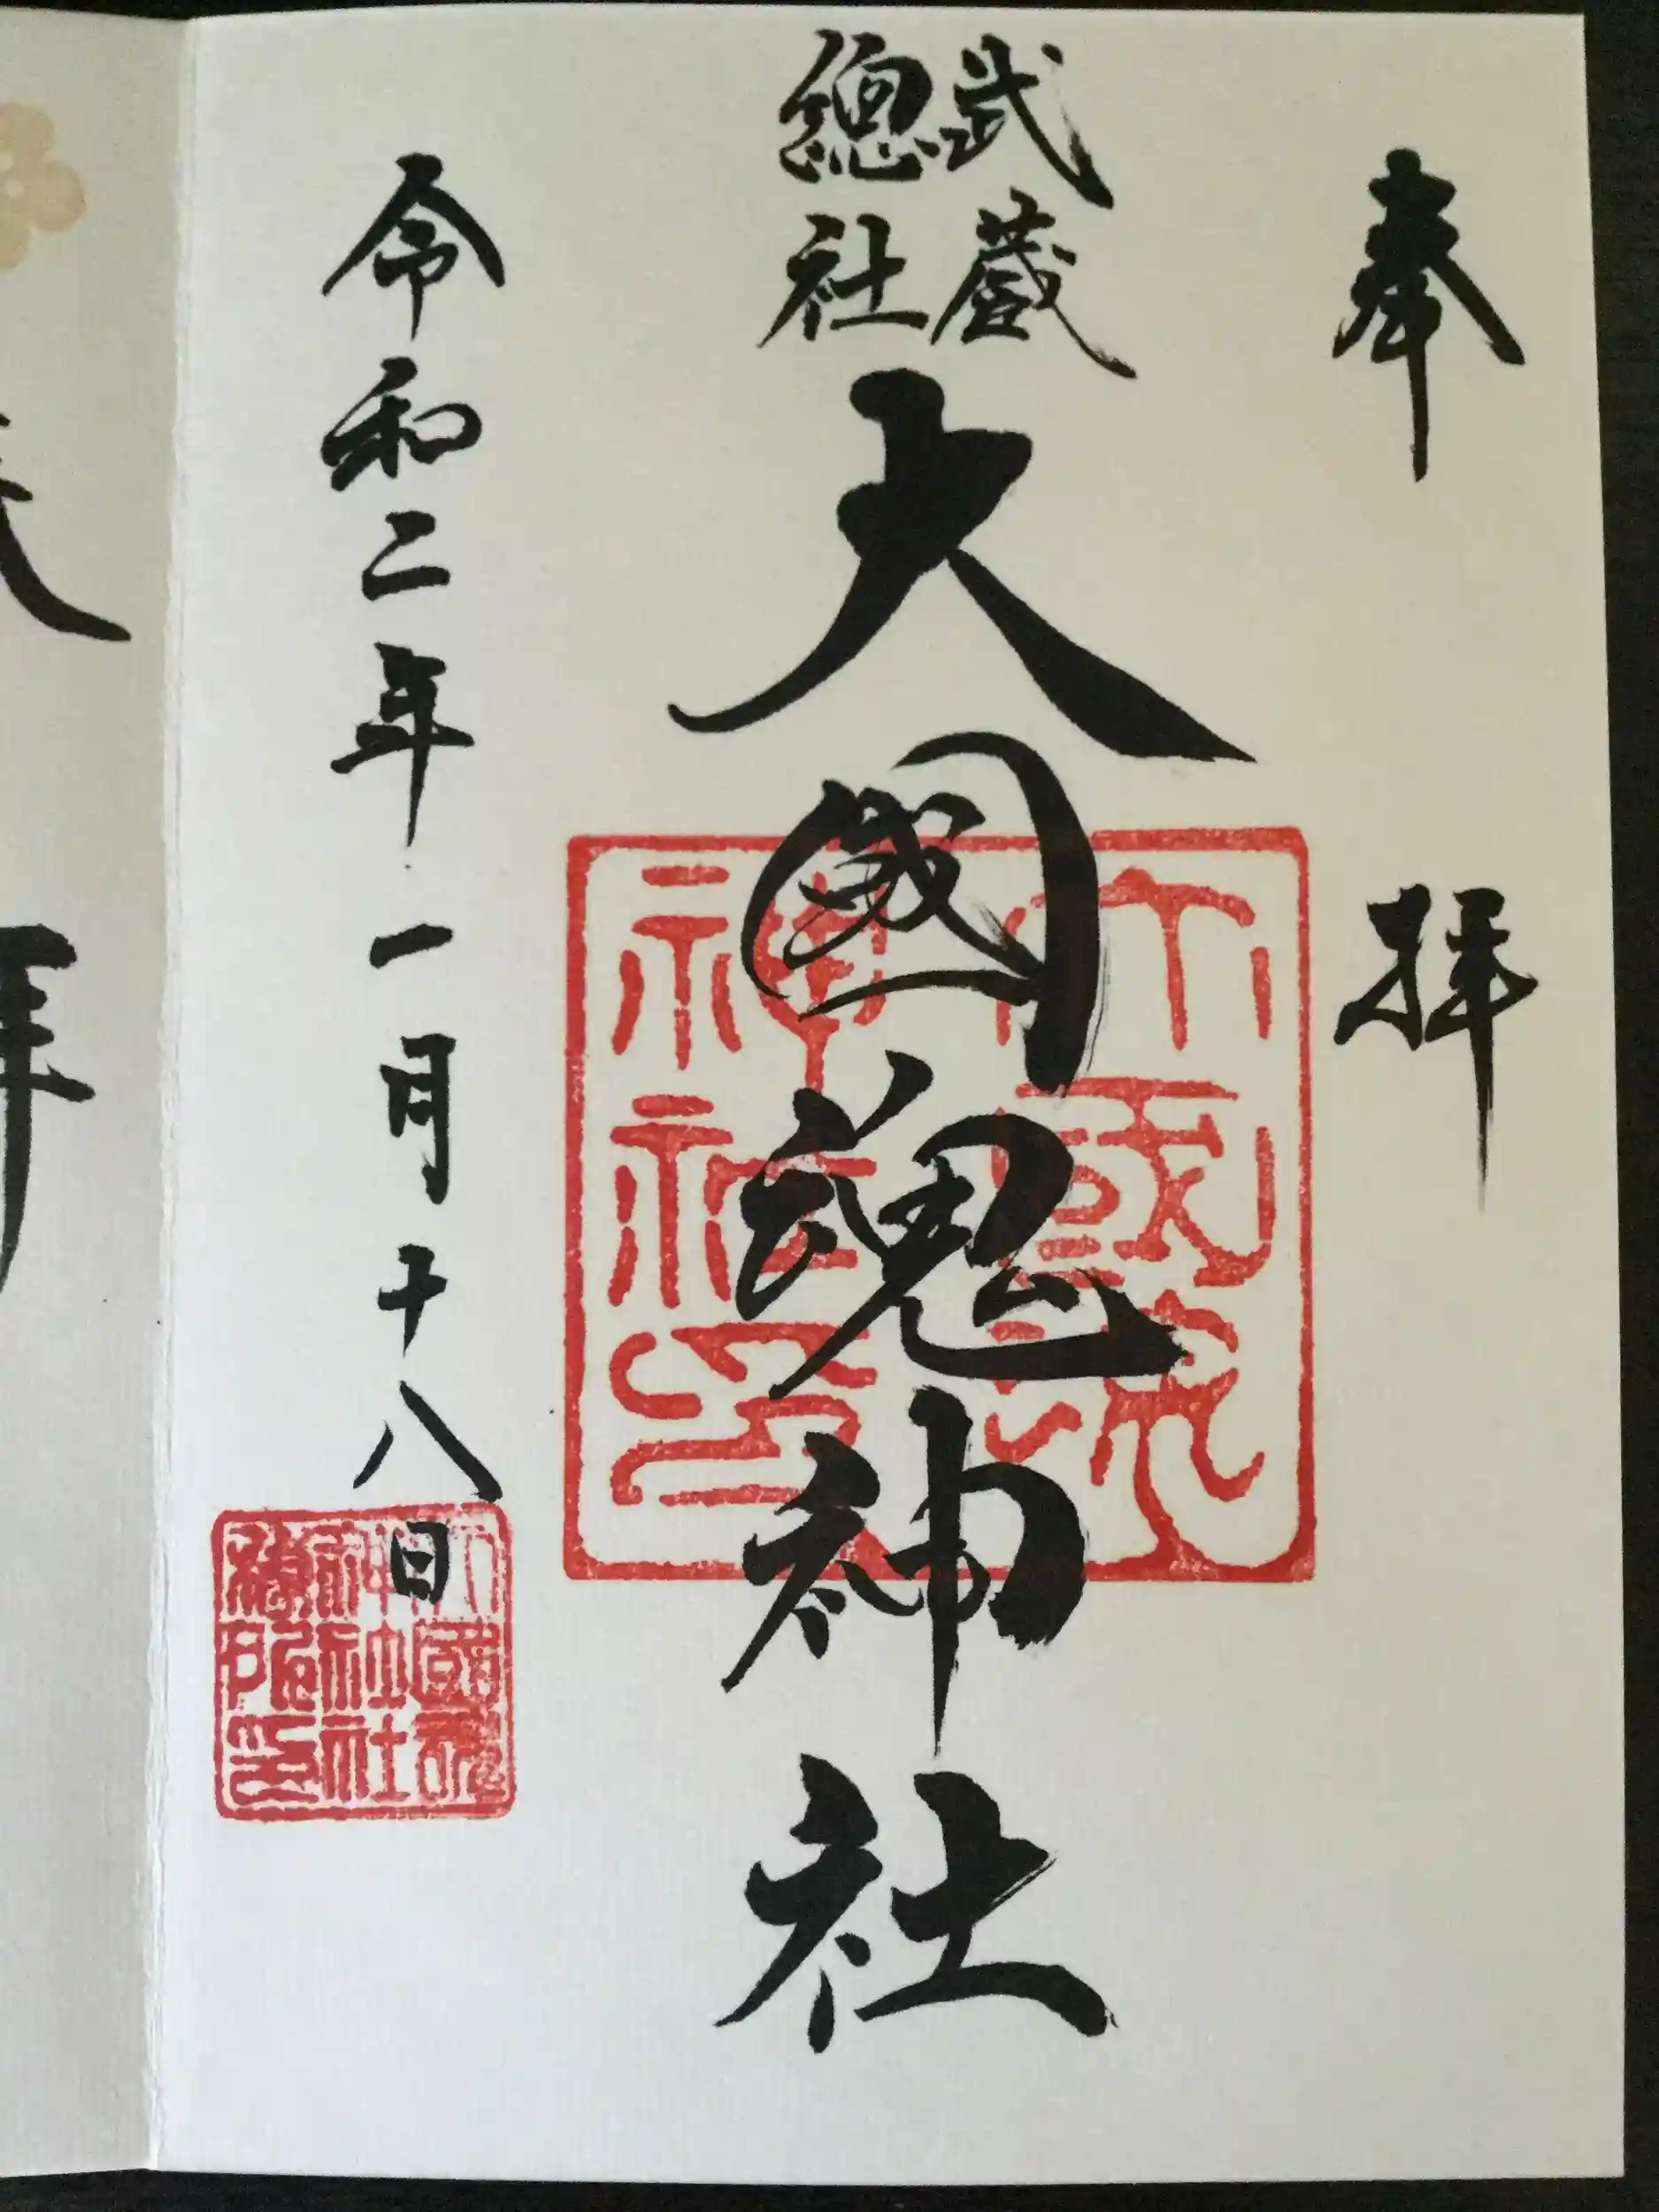 奉拝
武蔵
總社
大國魂神社
大國魂
神社印
令和二年一月十八日
大國魂
神社社
務所印